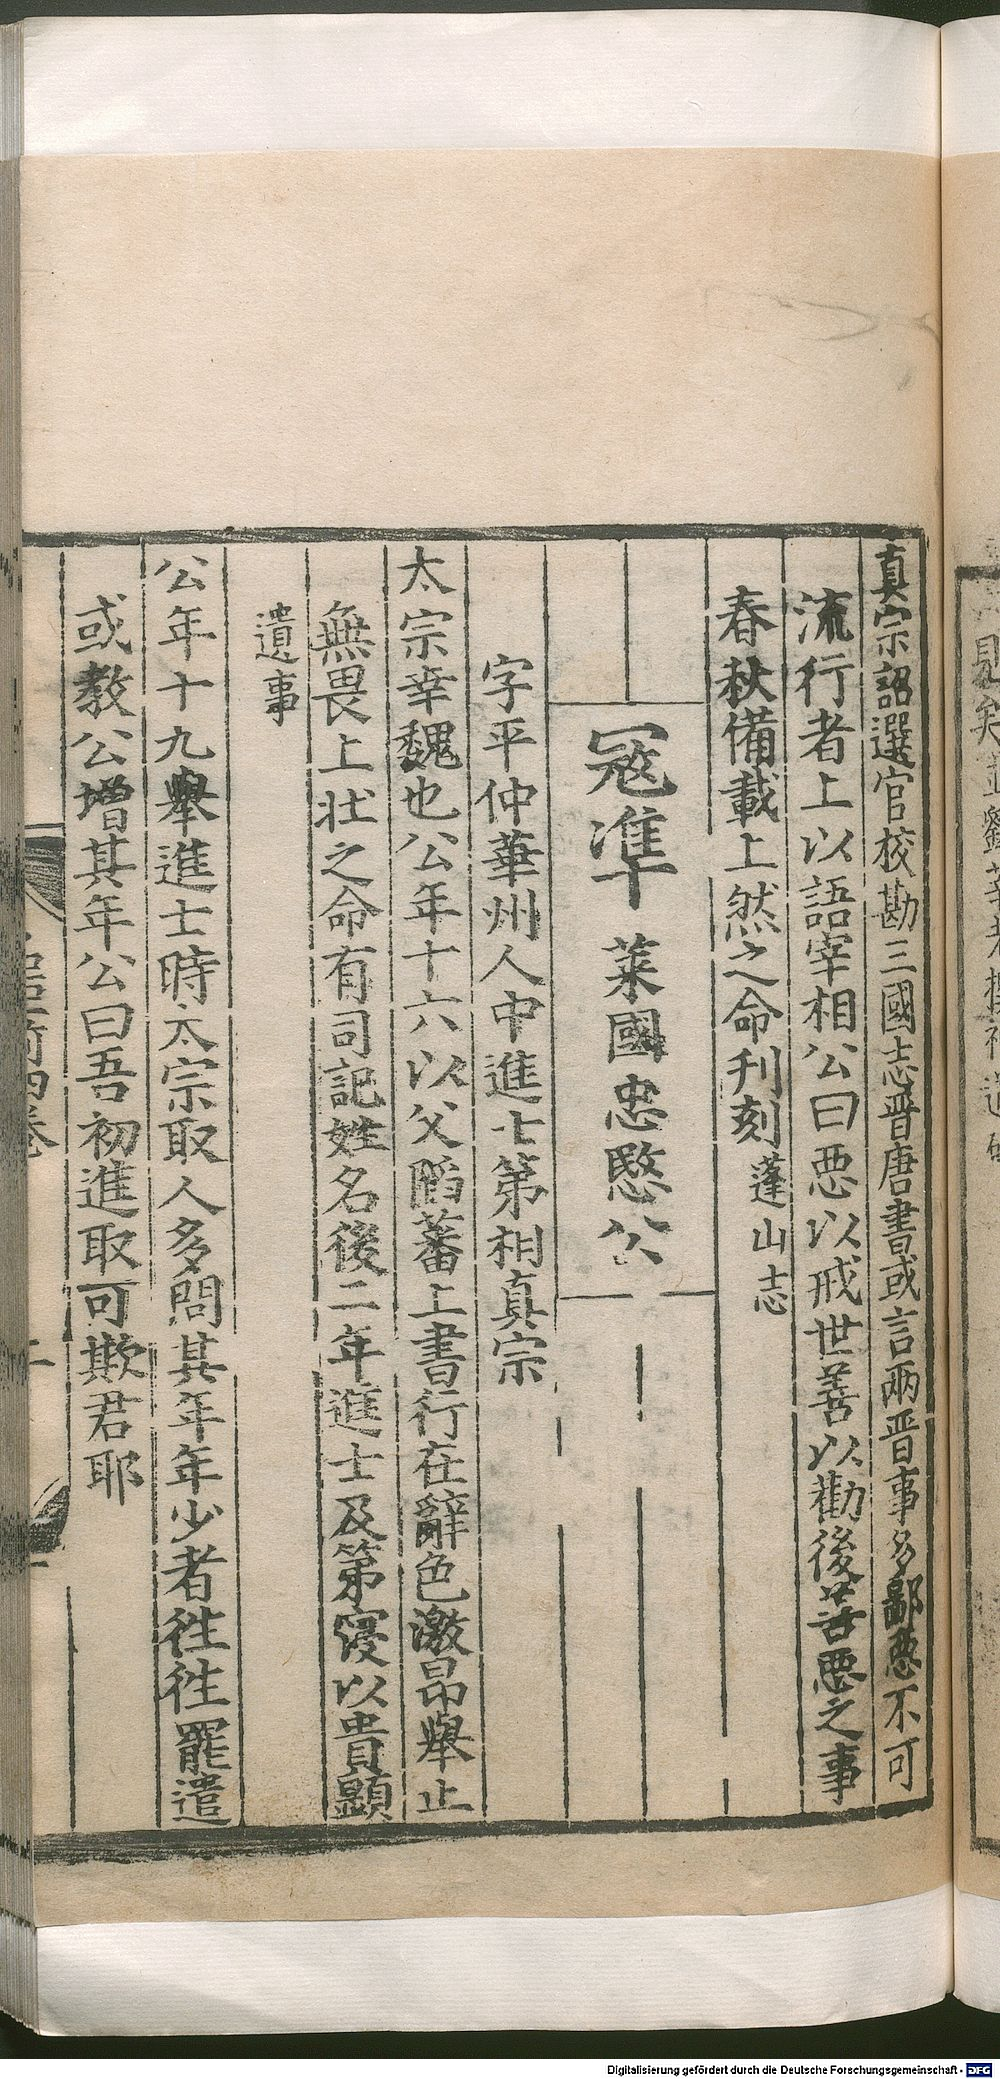 真宗詔選官校勘三國志晉唐書或言兩晉事多鄙惡不可
流行者上以語宰相公曰惡以戒世善以勸後善惡之事
春秋備載上然之命刊刻 蓬山志
寇準 萊國忠愍公
字平仲華州人中進士第相真宗
太宗幸魏也公年十六以父䧟蕃上書行在辭色激昂舉止
無畏上壯之命有司記姓名後二年進士及第寖以貴顯
遺事
公年十九舉進士時太宗取人多問其年年少者徃徃罷遣
或教公增其年公曰吾初進取可欺君耶
四卷
Digitalisierung gefördert durch die Deutsche Forschungsgemeinschaft - DFG